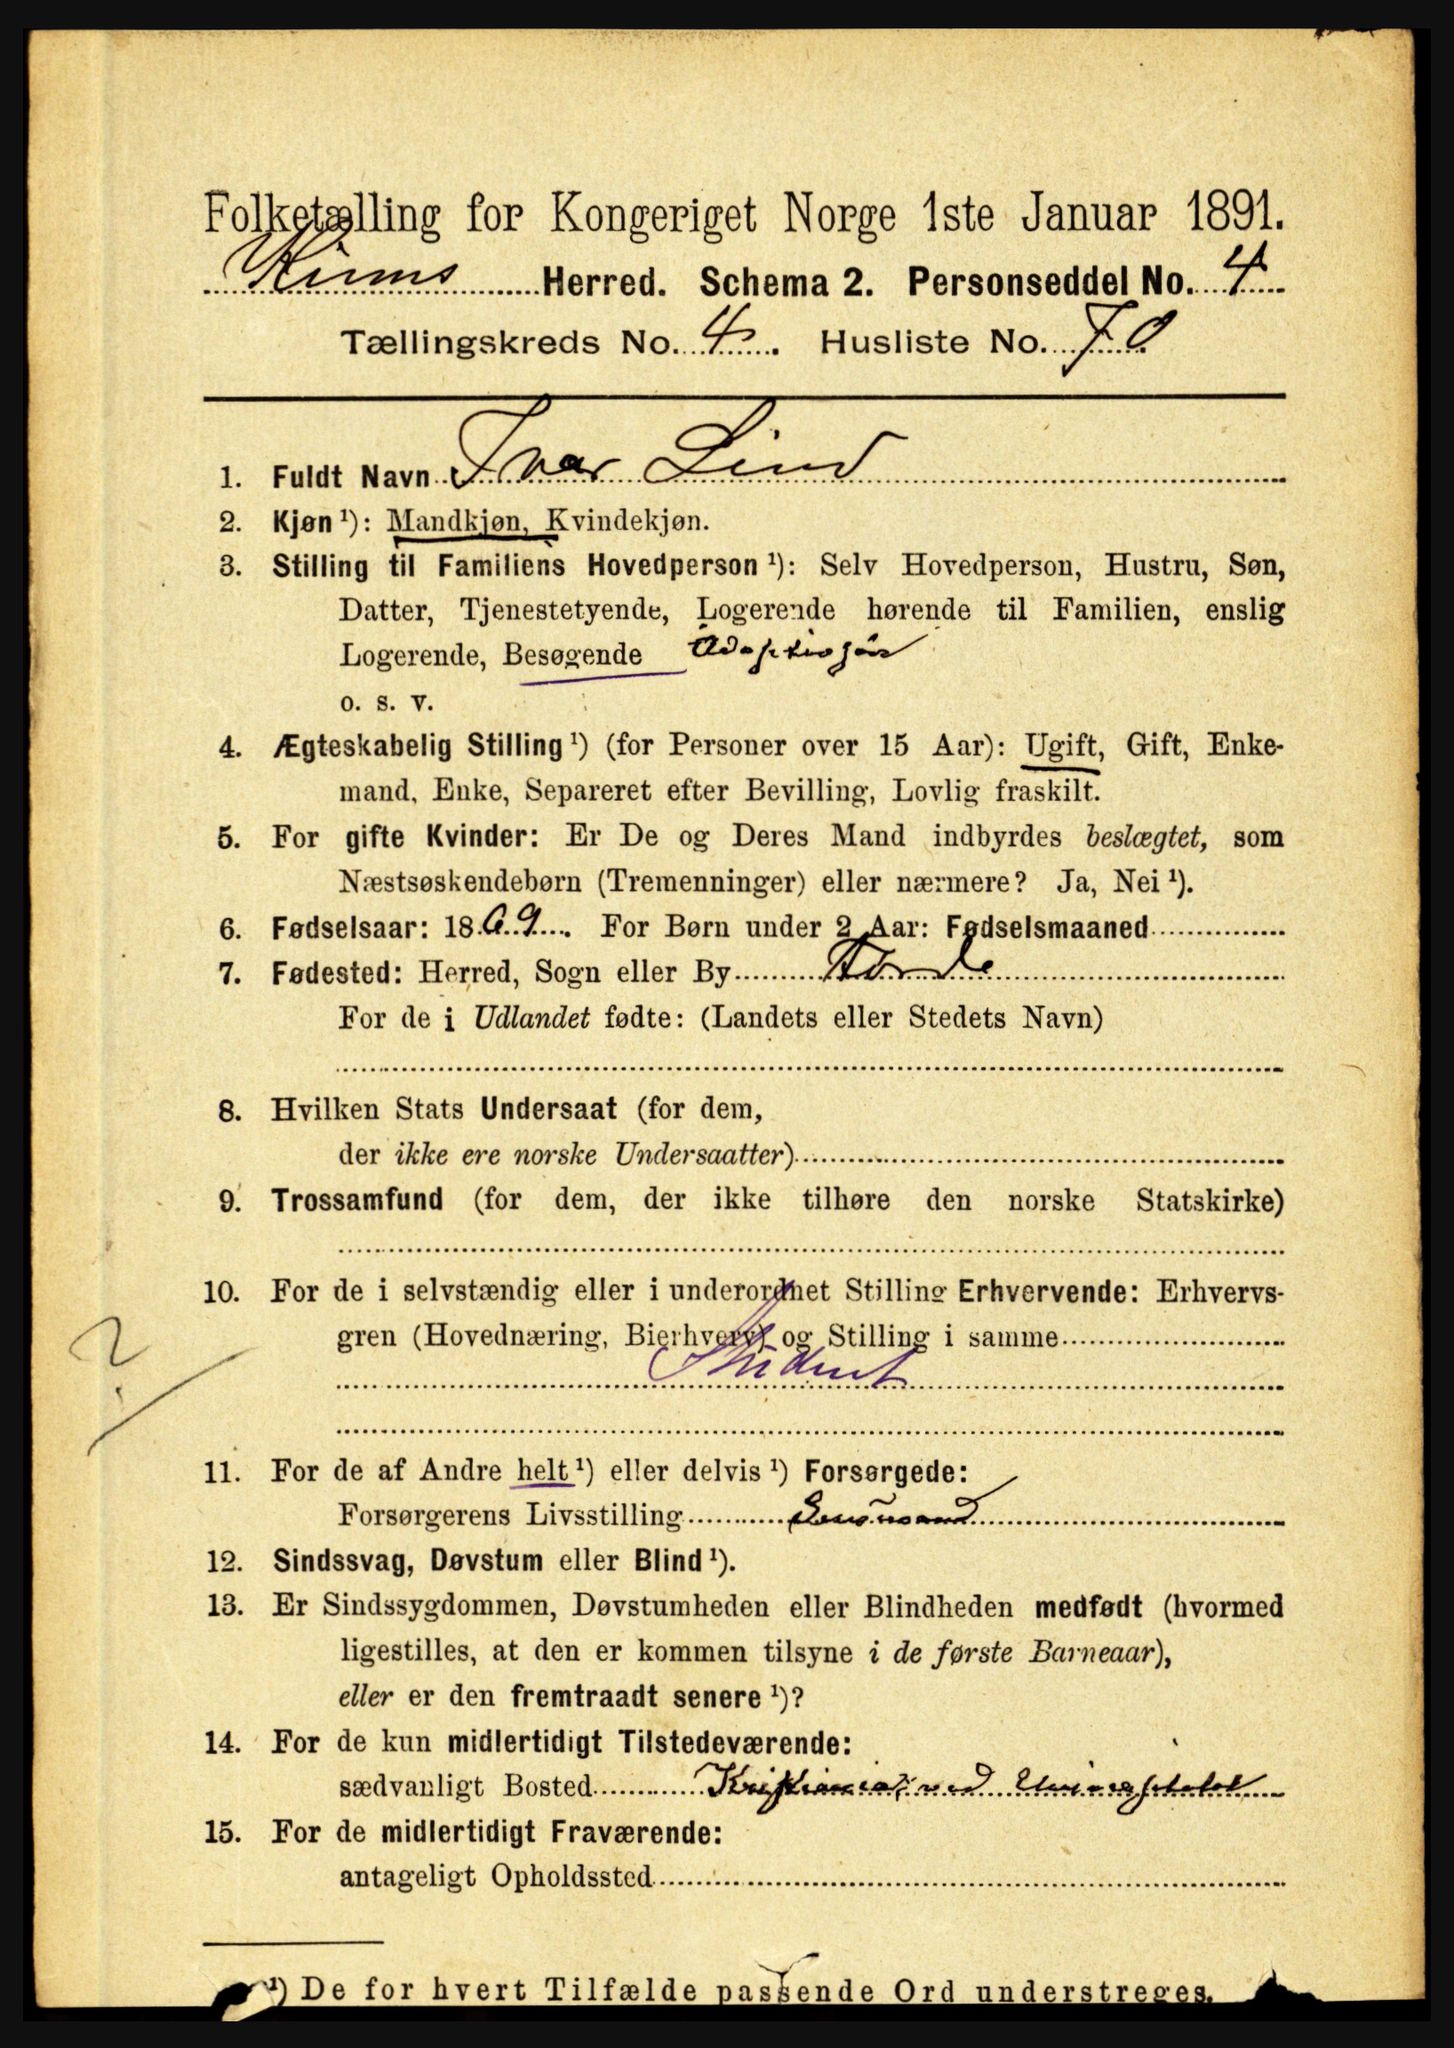 Folketælling for Kongeriget Norge 1ste Januar 1891.
Kinns Herred. Schema 2. Personseddel No. 4
Tællingskreds No. 4. Husliste No. 70
1. Fuldt Navn Ivar Lind
2. Kjøn ¹): Mandkjøn, Kvindekjøn.
3. Stilling til Familiens Hovedperson ¹): Selv Hovedperson, Hustru, Søn,
Datter, Tjenestetyende, Logerende hørende til Familien, enslig
Logerende, Besøgende
o. s. v.
4. Ægteskabelig Stilling ¹) (for Personer over 15 Aar): Ugift, Gift, Enke-
mand, Enke, Separeret efter Bevilling, Lovlig fraskilt.
5. For gifte Kvinder: Er De og Deres Mand indbyrdes beslægtet, som
Næstsøskendebørn (Tremenninger) eller nærmere? Ja, Nei ¹).
6. Fødselsaar: 1869. For Børn under 2 Aar: Fødselsmaaned
7. Fødested: Herred, Sogn eller By Førde
For de i Udlandet fødte: (Landets eller Stedets Navn)
8. Hvilken Stats Undersaat (for dem,
der ikke ere norske Undersaatter)
9. Trossamfund (for dem, der ikke tilhøre den norske Statskirke)
10. For de i selvstændig eller i underordnet Stilling Erhvervende: Erhvervs-
gren (Hovednæring, Bierhverv) og Stilling i samme
Student
11. For de af Andre helt ¹) eller delvis ¹) Forsørgede:
Forsørgerens Livsstilling Lensmand
12. Sindssvag, Døvstum eller Blind ¹).
13. Er Sindssygdommen, Døvstumheden eller Blindheden medfødt (hvormed
ligestilles, at den er kommen tilsyne i de første Barneaar),
eller er den fremtraadt senere ¹)?
14. For de kun midlertidigt Tilstedeværende:
sædvanligt Bosted Kristiania, ved Universitetet
15. For de midlertidigt Fraværende:
antageligt Opholdssted
¹) De for hvert Tilfælde passende Ord understreges.